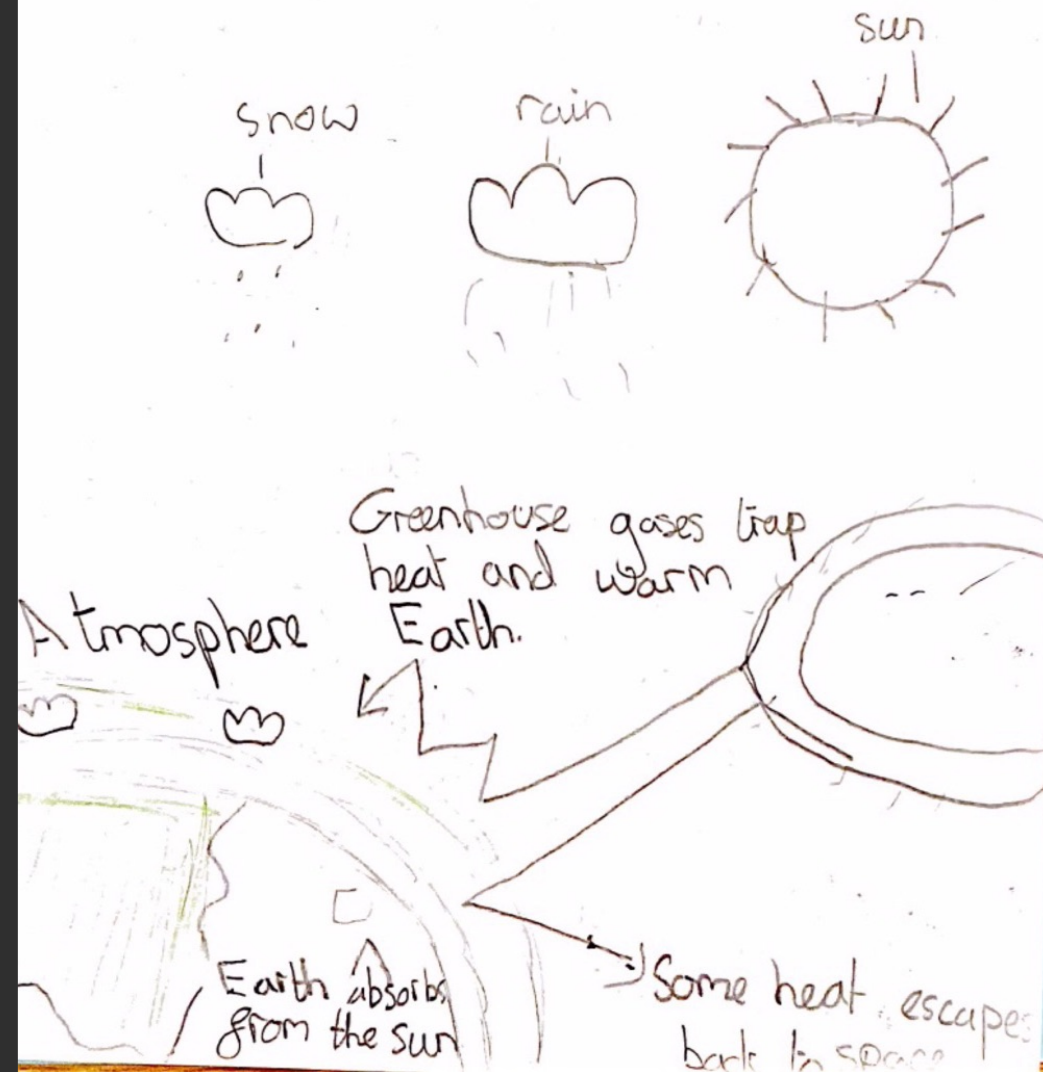 sun
snow
rain
Greenhouse gases trap
heat and warm
Earth.
Atmosphere
Earth absorbs
from the sun
Some heat escapes
back to space